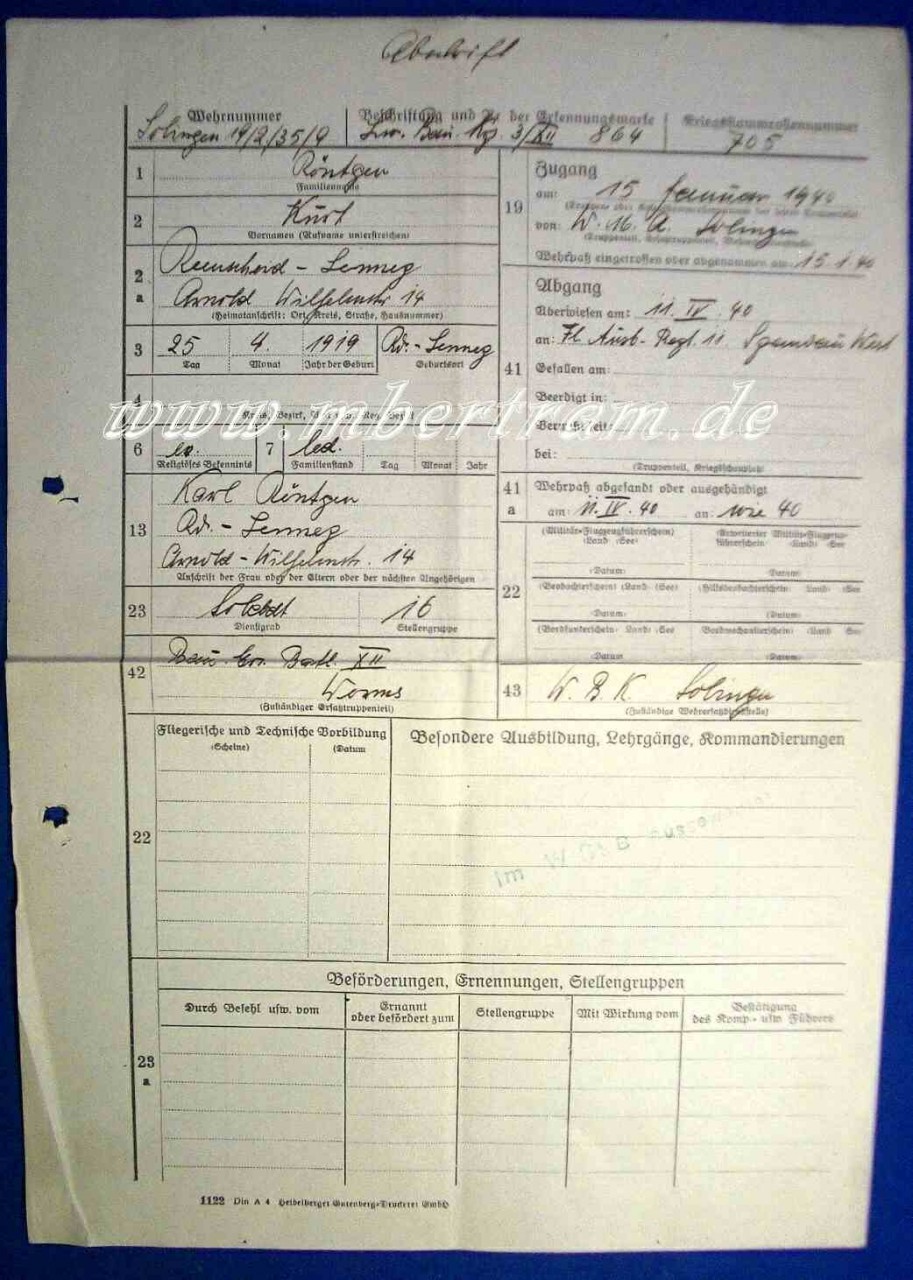 Abschrift
Wehrnummer
Solingen 19/2/35/9
Beschriftung und Nr der Erkennungsmarke
Lw. Bau. Kp. 3/XII 864
Kriegsstammrollennummer
705
1 Röntgen
Familienname
2 Kurt
Vornamen (Rufname unterstreichen)
2a Remscheid - Lennep
Arnold Wilhelmstr 14
(Heimatanschrift: Ort, Kreis, Straße, Hausnummer)
3 25 4. 1919 Rd. - Lennep
Tag Monat Jahr der Geburt Geburtsort
4
Kreis, Bezirk,
www.mbertram.de
6 ev. 7 led.
Religiöses Bekenntnis Familienstand Tag Monat Jahr
13 Karl Röntgen
Rd. - Lennep
Arnold - Wilhelmstr. 14
Anschrift der Frau oder der Eltern oder der nächsten Angehörigen
23 Soldat 16
Dienstgrad Stellengruppe
42 Bau. Ers. Batl. XII
Worms
(Zuständiger Ersatztruppenteil)
19 Zugang
am: 15 Januar 1940
von: W. M. A. Solingen
Wehrpaß eingetroffen oder abgenommen am: 15.1.40
Abgang
Überwiesen am: 11. IV. 40
an: Fl. Ausb. - Regt. 11
41 Gefallen am:
Beerdigt in:
bei:
(Truppenteil, Kriegsschauplatz)
41a Wehrpaß abgesandt oder ausgehändigt
am: 11. IV. 40 an: wie 40
22 (Militär-Flugzeugführerschein) (Erweiterter Militär-Flugzeugführerschein)
(Land) (See) (Land) (See)
(Datum) (Datum)
(Beobachterschein) (Land) (See) (Hilfsbeobachterschein) (Land) (See)
(Datum) (Datum)
(Bordfunkerschein) (Land) (See) (Bordmechanikerschein) (Land) (See)
(Datum) (Datum)
43 W. B. K. Solingen
(Zuständige Wehrersatzdienststelle)
22 Fliegerische und Technische Vorbildung
(Scheine) (Datum)
Besondere Ausbildung, Lehrgänge, Kommandierungen
Im
23a Beförderungen, Ernennungen, Stellengruppen
Durch Befehl usw. vom
Ernannt
oder befördert zum
Stellengruppe
Mit Wirkung vom
Bestätigung
des Komp.- usw. Führers
1122 Din A 4 Heidelberger Gutenberg-Druckerei GmbH